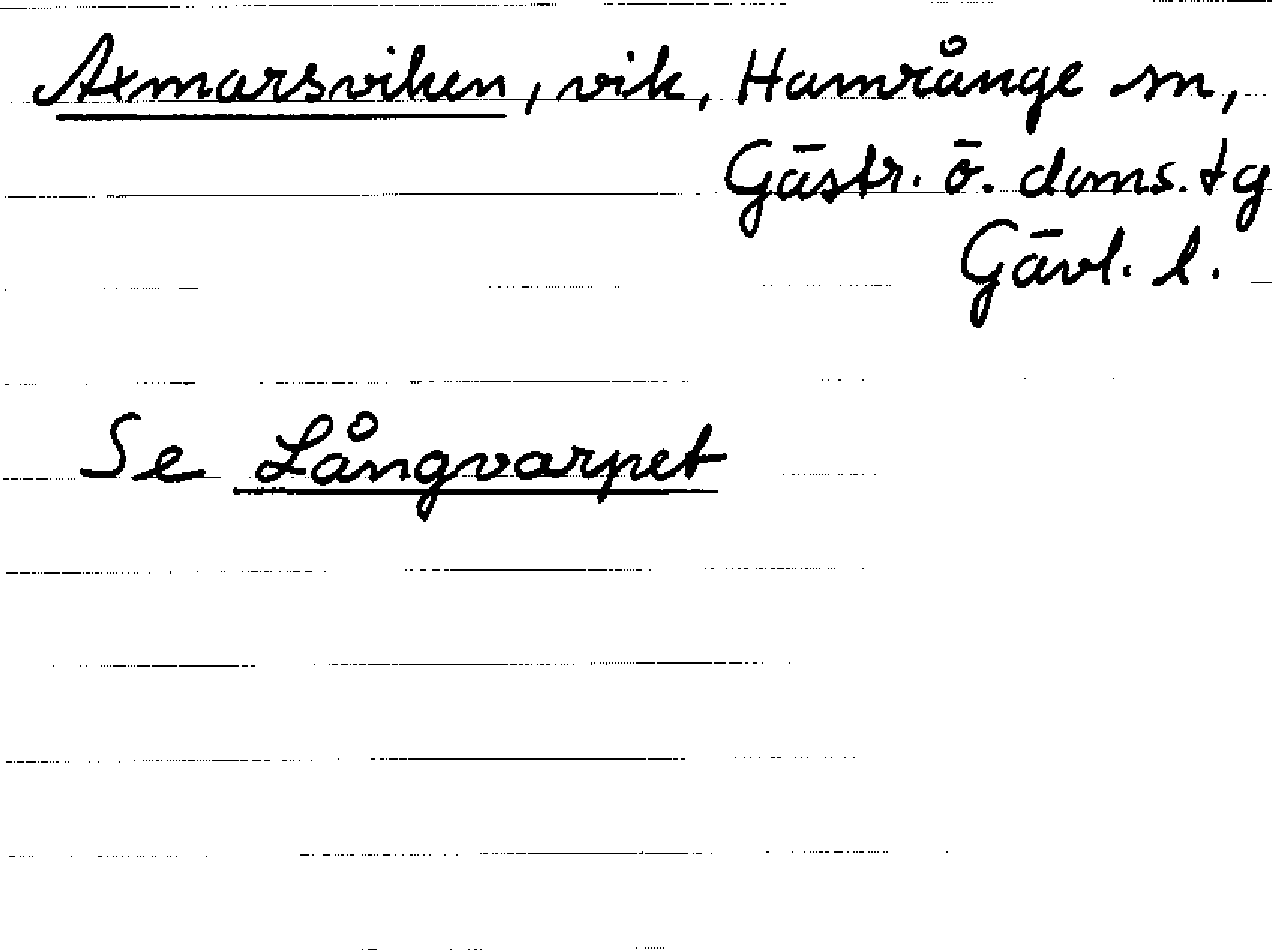 Axmarsviken, vik, Hamrånge sn,
Gästr. ö. doms. tg
Gävl. l.
Se Långvarpet